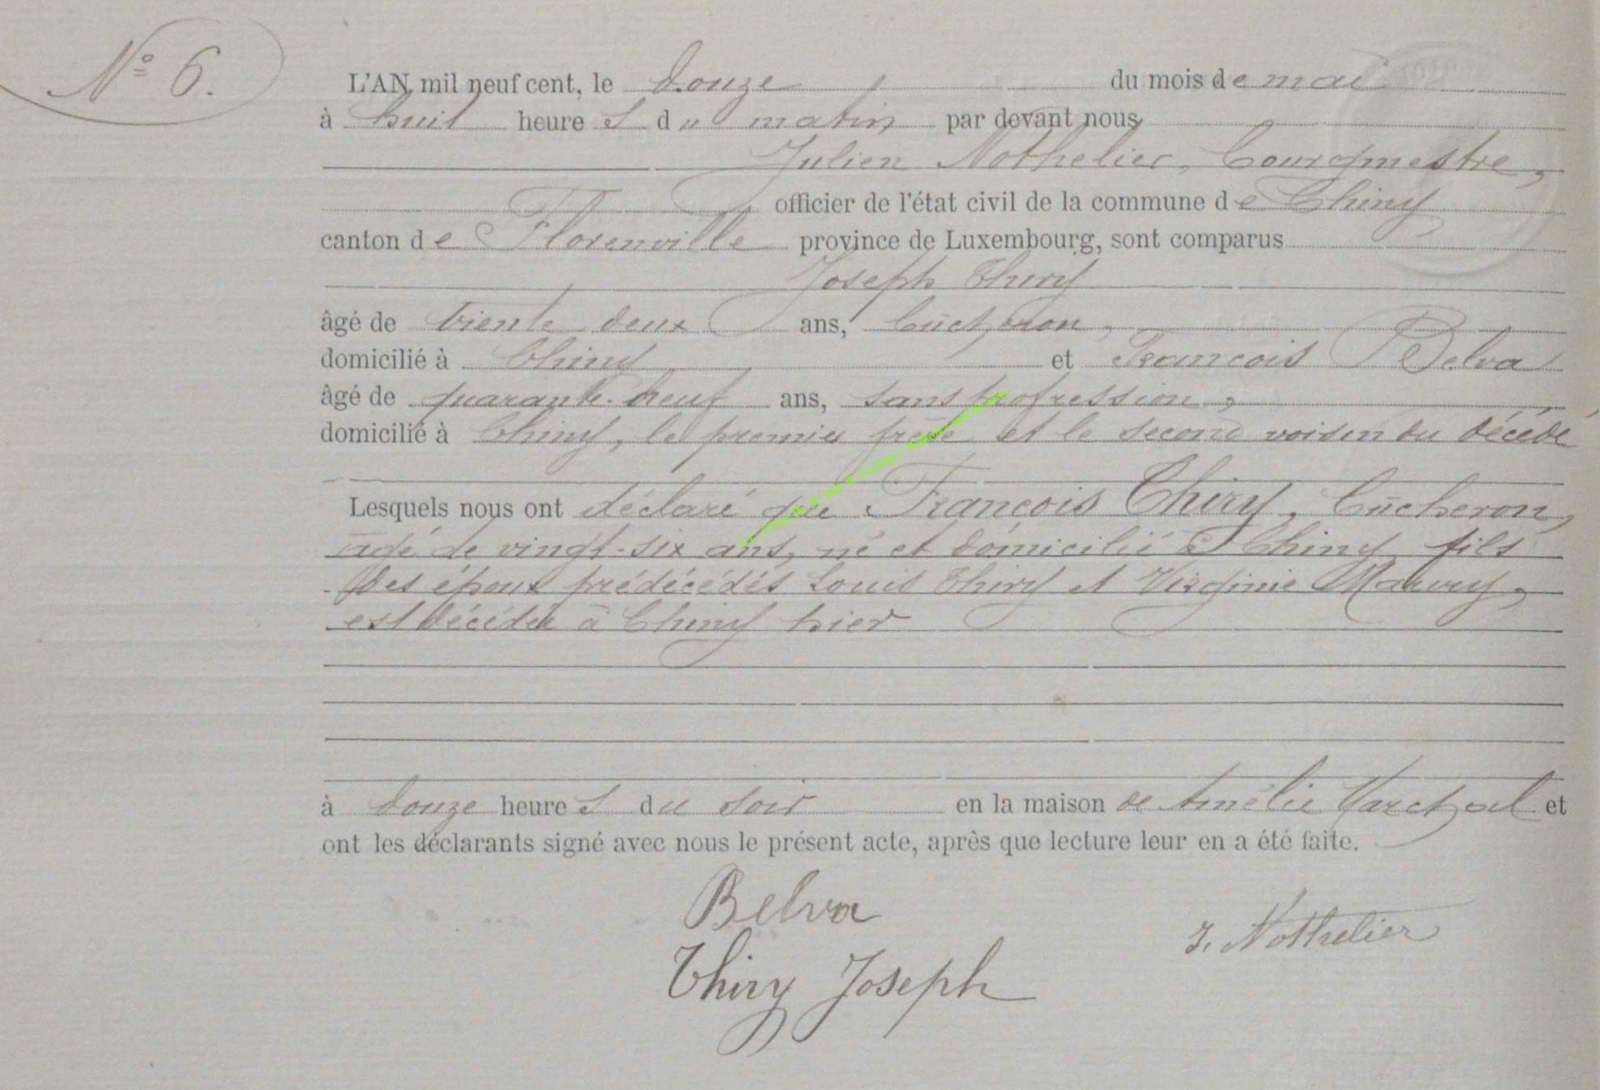 N° 6.
L'AN mil neuf cent, le douze du mois de mai
à huit heures du matin par devant nous
Julien Nothelier, Bourgmestre,
officier de l'état civil de la commune de Chiny
canton de Florenville province de Luxembourg, sont comparus
Joseph Thiry
âgé de trente deux ans, bûcheron,
domicilié à Chiny et François Belva
âgé de quarante-neuf ans, sans profession,
domicilié à Chiny, le premier frère et le second voisin du décédé
Lesquels nous ont déclaré que François Thiry, bûcheron,
âgé de vingt-six ans, né et domicilié à Chiny, fils
des époux prédécédés Louis Thiry et Virginie
est décédé à Chiny hier
à douze heures du soir en la maison de Amélie et
ont les déclarants signé avec nous le présent acte, après que lecture leur en a été faite.
Belva
J. Nothelier
Thiry Joseph